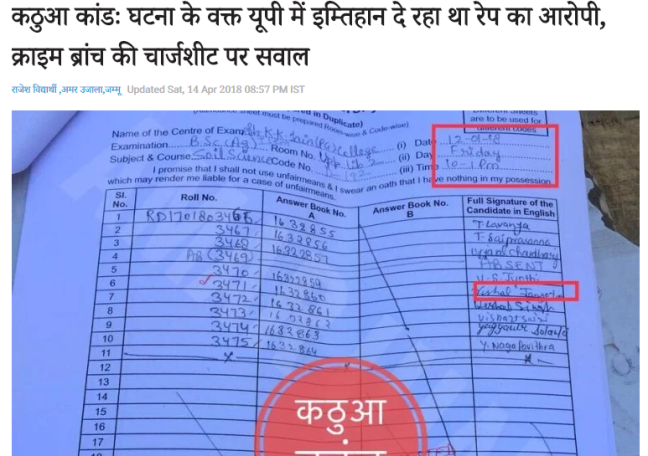 कठुआ कांडः घटना के वक्त यूपी में इम्तिहान दे रहा था रेप का आरोपी,
क्राइम ब्रांच की चार्जशीट पर सवाल
राजेश विद्यार्थी ,अमर उजाला,जम्मू Updated Sat, 14 Apr 2018 08:57 PM IST
must be prepared Room-wise & Code-wise)
are to be used for
different codes
Name of the Centre of Exam. K.K. Jain (PG) College (i) Date 12-01-18
Examination B.Sc (Ag) Room No. (ii) Day Friday
Subject & Course Soil Science Code No. (iii) Time 10-1 PM
I promise that I shall not use unfairmeans & I swear an oath that I have nothing in my possession
which may render me liable for a case of unfairmeans.
Sl. No. Roll No. Answer Book No. A Answer Book No. B Full Signature of the Candidate in English
1 1632855 T. Lavanya
2 3467 1632856
3 3468 1632857
4 AB (3469) ABSENT
5 3470 1632859
6 3471 1632860 Vishal
7 3472 1632861 Singh
8 3473 1632862
9 3474 1632863 Solanki
10 3475 1632864 Y. Naga Pavithra
11
12
13
14
15
16
17
कठुआ